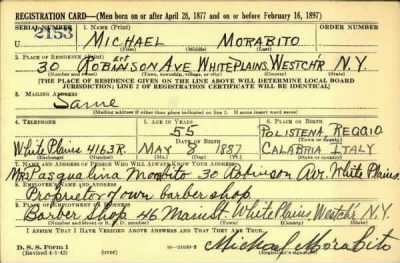 REGISTRATION CARD—(Men born on or after April 28, 1877 and on or before February 16, 1897)
SERIAL NUMBER 1. NAME (Print) ORDER NUMBER
2153 MICHAEL MORABITO
(First) (Middle) (Last)
2. PLACE OF RESIDENCE (Print)
30 ROBINSON AVE WHITE PLAINS WESTCH'R N.Y.
(Number and street) (Town, township, village, or city) (County) (State)
[THE PLACE OF RESIDENCE GIVEN ON THE LINE ABOVE WILL DETERMINE LOCAL BOARD
JURISDICTION; LINE 2 OF REGISTRATION CERTIFICATE WILL BE IDENTICAL]
3. MAILING ADDRESS
Same
[Mailing address if other than place indicated on line 2. If same insert word same]
4. TELEPHONE 5. AGE IN YEARS 6. PLACE OF BIRTH
55 POLISTENA, REGGIO
DATE OF BIRTH (Town or county)
White Plains 4163R. MAY 8 1887 CALABRIA ITALY
(Exchange) (Number) (Mo.) (Day) (Yr.) (State or country)
7. NAME AND ADDRESS OF PERSON WHO WILL ALWAYS KNOW YOUR ADDRESS
Mrs Pasqualina Morabito 30 Robinson Av. White Plains.
8. EMPLOYER'S NAME AND ADDRESS
Proprietor of own barber shop
9. PLACE OF EMPLOYMENT OR BUSINESS
Barber Shop 46 Main St. White Plains Westch'r N.Y.
(Number and street or R. F. D. number) (Town) (County) (State)
I AFFIRM THAT I HAVE VERIFIED ABOVE ANSWERS AND THAT THEY ARE TRUE.
D. S. S. Form 1
(Revised 4-1-42) (over) Michael Morabito
(Registrant's signature)